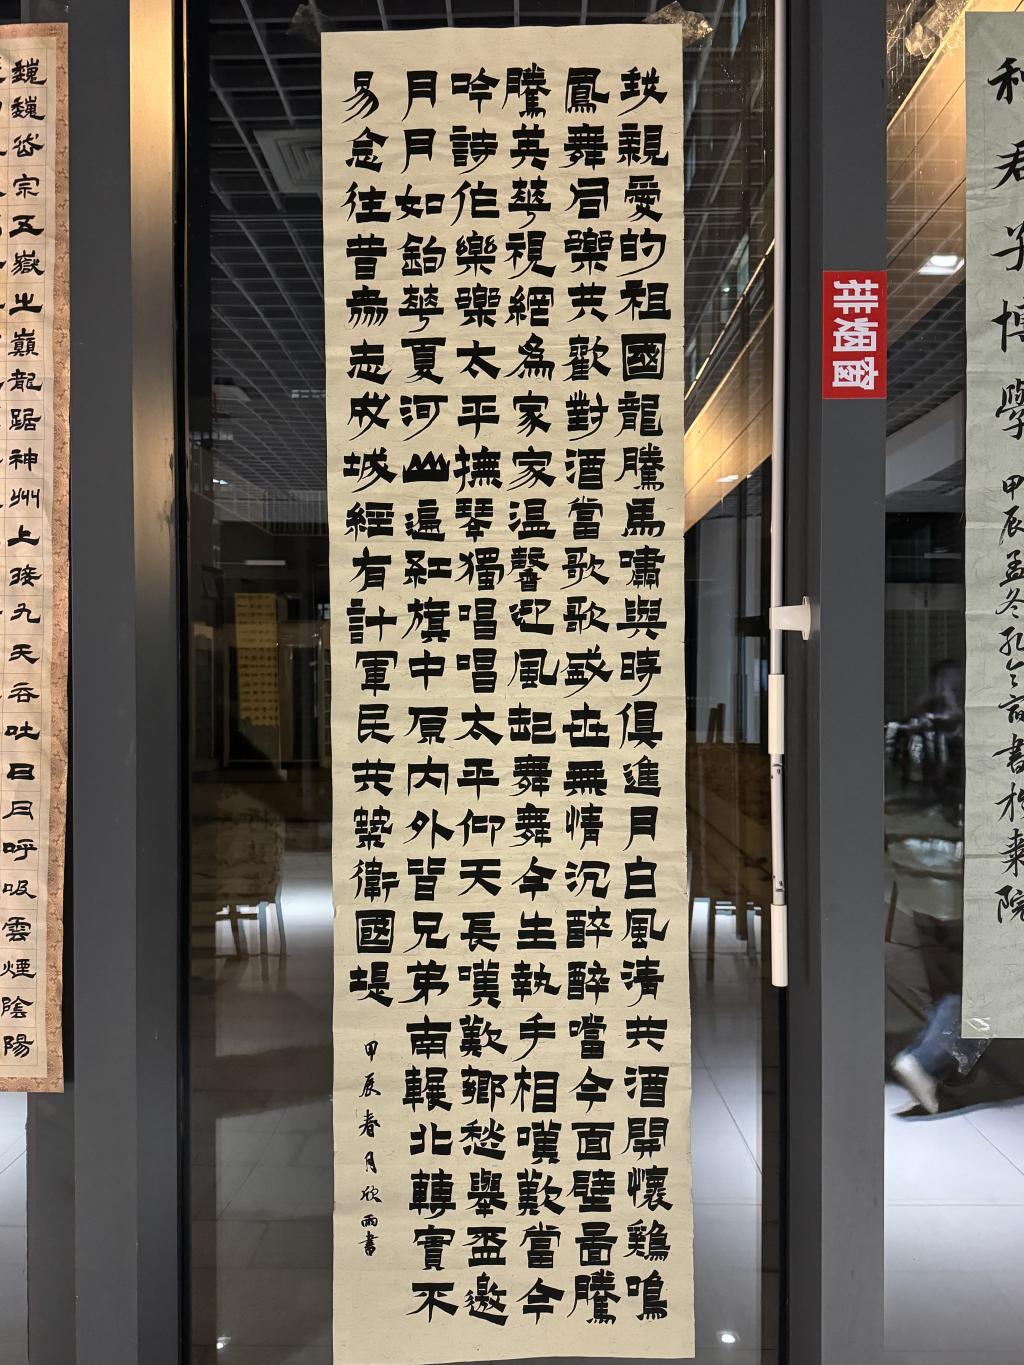 君子博學
甲辰孟冬孔令書於棗院
排烟窗
親愛的祖國龍騰馬嘯與時俱進月白風清共酒開懷鷄鳴
鳳舞同樂共歡對酒當歌歌盛世無情沉醉醉噹今面壁啚騰
騰英華視網為家家温馨迎風起舞舞今生執手相嘆歎當今
吟詩作樂樂太平撫琴獨唱唱太平仰天長嘆歎鄉愁舉盃邀
月月如鉤華夏河山遍紅旗中原内外皆兄弟南輾北轉實不
易念往昔衆志成城經有計軍民共築衛國堤
甲辰春月欣雨書
巍巍岱宗五嶽之巔龍踞神州上接九天吞吐日月呼吸雲煙陰陽